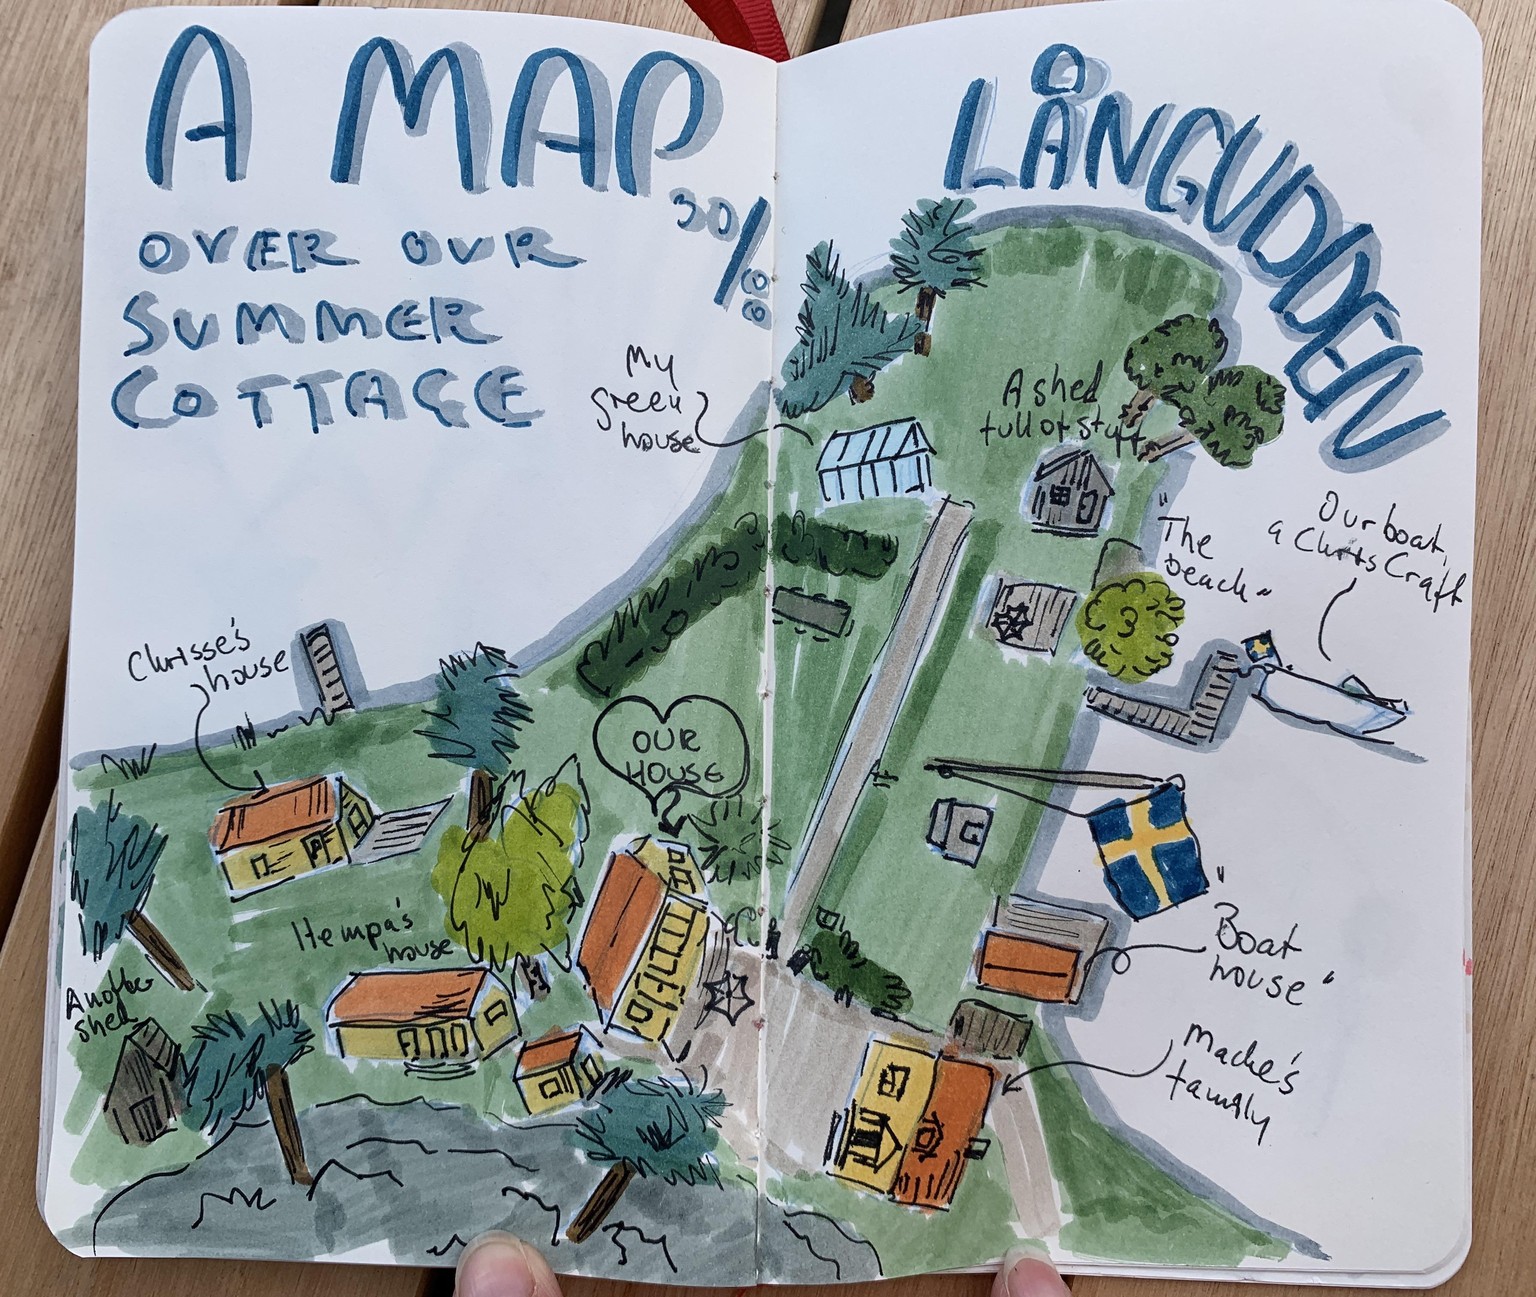 A MAP
OVER OUR
SUMMER
COTTAGE
30/8
LÅNGUDDEN
My
green
house
A shed
full of stuff
"The
beach"
Our boat,
a Chris Craft
Chrisse's
house
OUR
HOUSE
Hempa's
house
Another
shed
"Boat
house"
Macke's
family